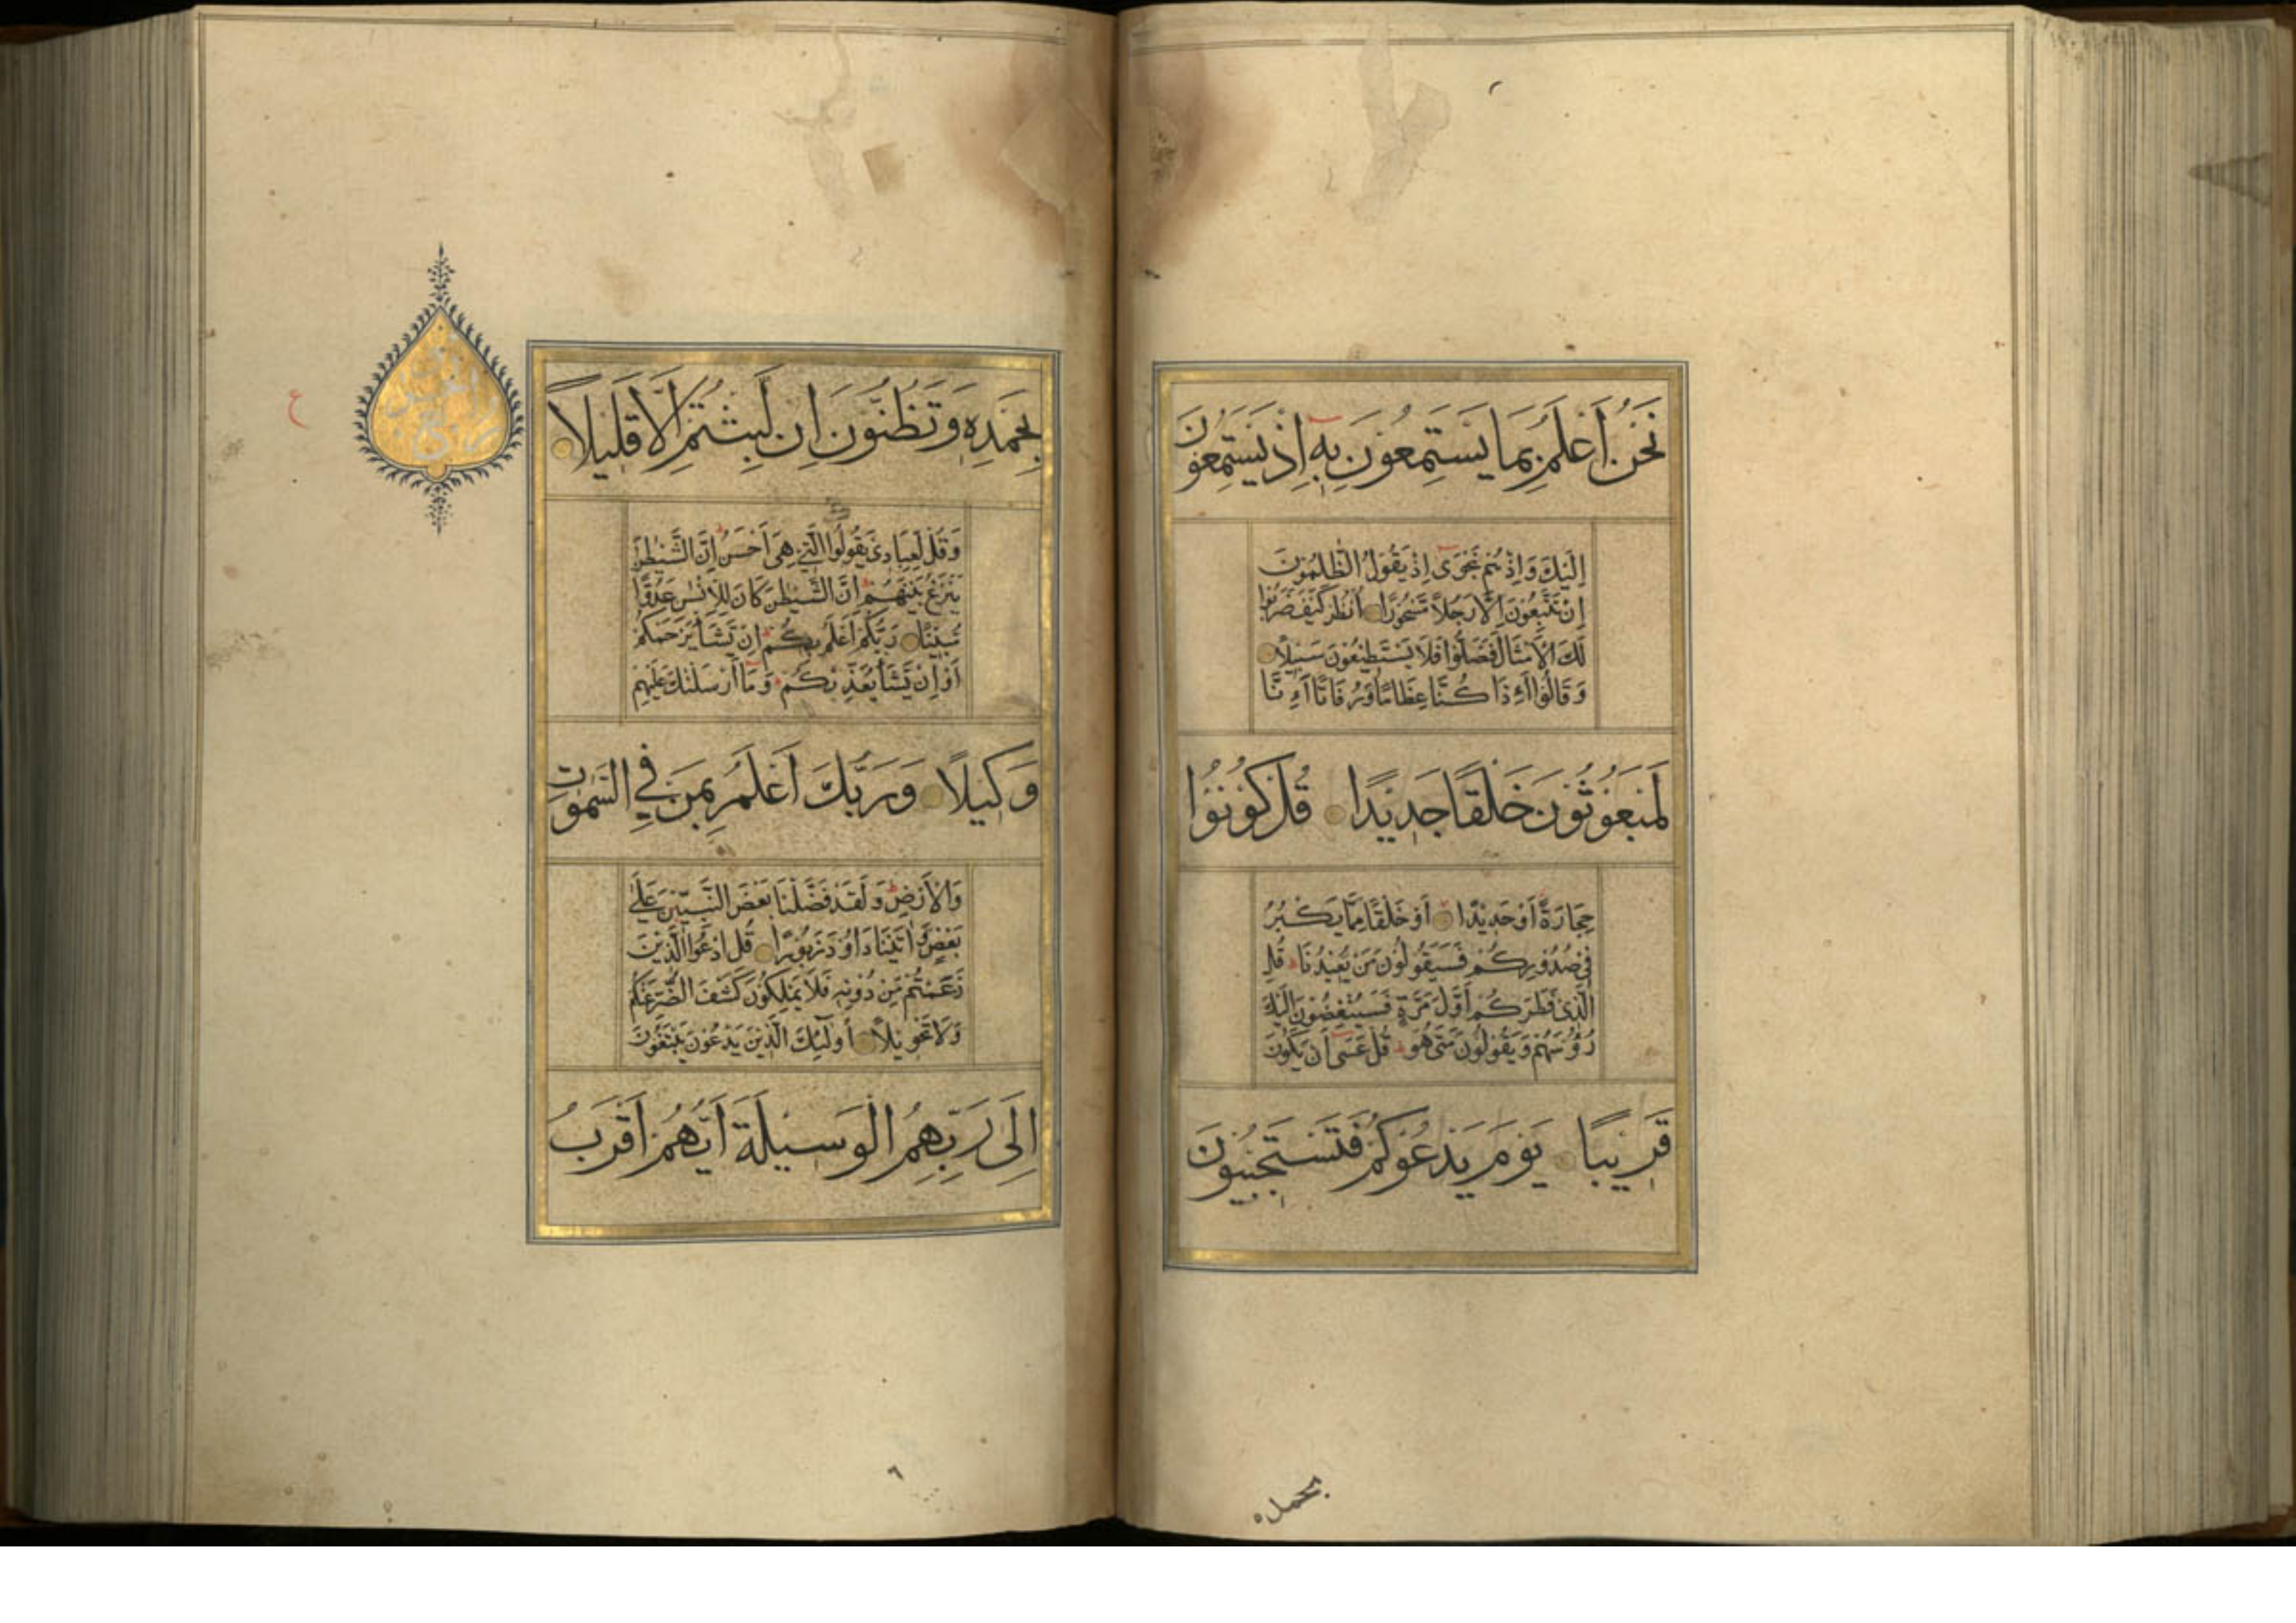 نَحْنُ أَعْلَمُ بِمَا يَسْتَمِعُونَ بِهِ إِذْ يَسْتَمِعُونَ
إِلَيْكَ وَإِذْ هُمْ نَجْوَى إِذْ يَقُولُ الظَّلِمُونَ
إِنْ تَتَّبِعُونَ إِلَّا رَجُلًا مَسْحُورًا أُنْظُرْ كَيْفَ ضَرَبُوا
لَكَ الْأَمْثَالَ فَضَلُّوا فَلَا يَسْتَطِيعُونَ سَبِيلًا
وَقَالُوا أَءِذَا كُنَّا عِظَامًا وَرُفَاتًا أَءِنَّا
لَمَبْعُوثُونَ خَلْقًا جَدِيدًا قُلْ كُونُوا
حِجَارَةً أَوْ حَدِيدًا أَوْ خَلْقًا مِمَّا يَكْبُرُ
فِي صُدُورِكُمْ فَسَيَقُولُونَ مَنْ يُعِيدُنَا قُلِ
الَّذِي فَطَرَكُمْ أَوَّلَ مَرَّةٍ فَسَيُنْغِضُونَ إِلَيْكَ
رُؤُسَهُمْ وَيَقُولُونَ مَتَى هُوَ قُلْ عَسَى أَنْ يَكُونَ
قَرِيبًا يَوْمَ يَدْعُوكُمْ فَتَسْتَجِيبُونَ
بحمده
بِحَمْدِهِ وَتَظُنُّونَ إِنْ لَبِثْتُمْ إِلَّا قَلِيلًا
وَقُلْ لِعِبَادِي يَقُولُوا الَّتِي هِيَ أَحْسَنُ إِنَّ الشَّيْطٰنَ
يَنْزَغُ بَيْنَهُمْ إِنَّ الشَّيْطٰنَ كَانَ لِلْإِنْسٰنِ عَدُوًّا
مُبِينًا رَبُّكُمْ أَعْلَمُ بِكُمْ إِنْ يَشَأْ يَرْحَمْكُمْ
أَوْ إِنْ يَشَأْ يُعَذِّبْكُمْ وَمَا أَرْسَلْنٰكَ عَلَيْهِمْ
وَكِيلًا وَرَبُّكَ أَعْلَمُ بِمَنْ فِي السَّمٰوٰتِ
وَالْأَرْضِ وَلَقَدْ فَضَّلْنَا بَعْضَ النَّبِيِّينَ عَلَى
بَعْضٍ وَاٰتَيْنَا دَاوُدَ زَبُورًا قُلِ ادْعُوا الَّذِينَ
زَعَمْتُمْ مِنْ دُونِهِ فَلَا يَمْلِكُونَ كَشْفَ الضُّرِّ عَنْكُمْ
وَلَا تَحْوِيلًا أُولٰئِكَ الَّذِينَ يَدْعُونَ يَبْتَغُونَ
إِلَى رَبِّهِمُ الْوَسِيلَةَ أَيُّهُمْ أَقْرَبُ
ع
٦